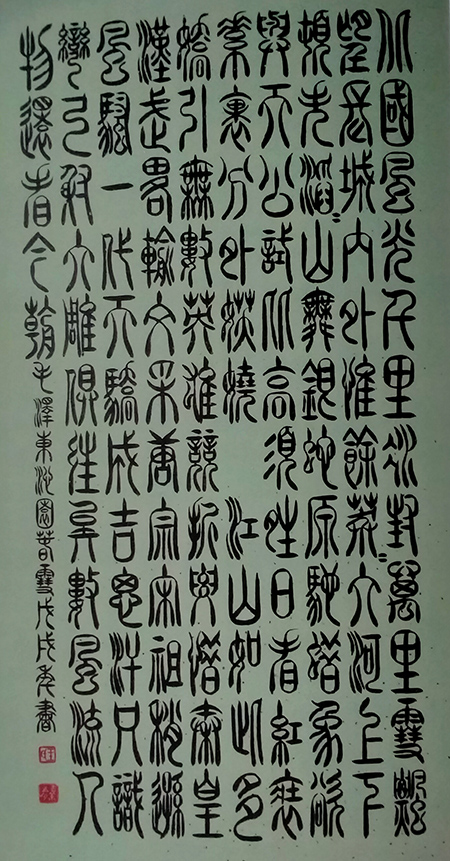 北國風光千里冰封萬里雪飄
望長城內外惟餘莽〻大河上下
頓失滔〻山舞銀蛇原馳蠟象欲
與天公試比高須晴日看紅裝
素裹分外妖嬈 江山如此多
嬌引無數英雄競折腰惜秦皇
漢武畧輸文采唐宗宋祖稍遜
風騷一代天驕成吉思汗只識
彎弓射大雕俱往矣數風流人
物還看今朝 毛澤東沁園春雪戊戌年書